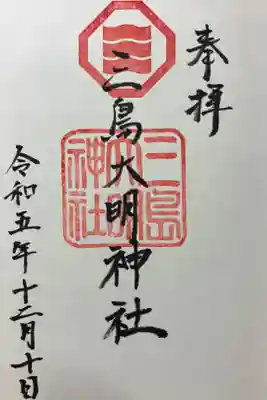 奉拝
三島大明神社
三島大明神社
令和五年十二月十日